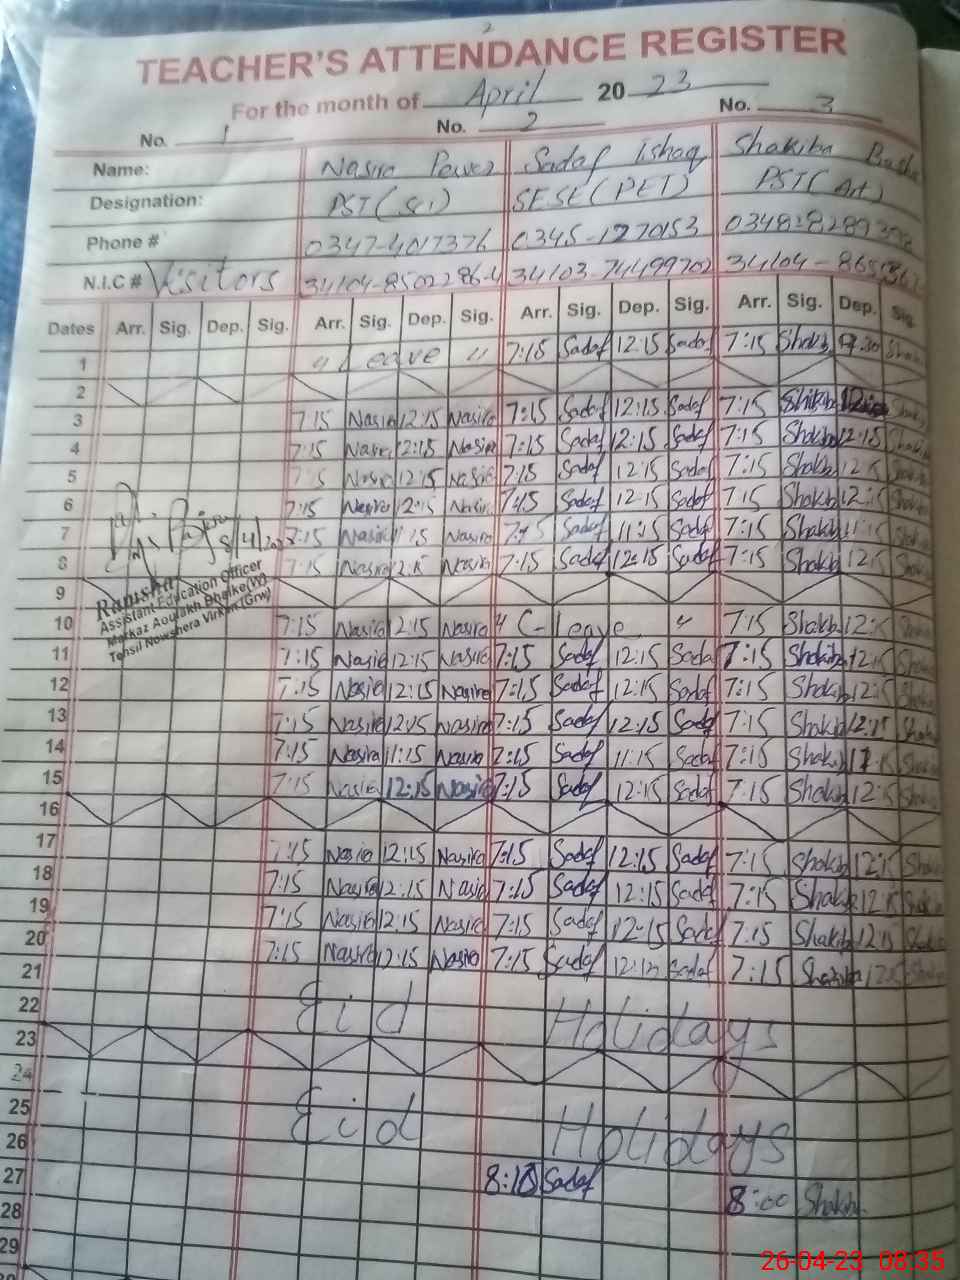 2
TEACHER'S ATTENDANCE REGISTER
For the month of April 2023
No. 1 No. 2 No. 3
Name: Nasira Sadaf Ishaq Shakiba
Designation: PST(Sci) SESE(PET) PST(Art)
Phone # 0347-4017376 0345-1270153
N.I.C # Visitors
Dates Arr. Sig. Dep. Sig. Arr. Sig. Dep. Sig. Arr. Sig. Dep. Sig. Arr. Sig. Dep. Sig.
1 " Leave " 7:15 Sadaf 12:15 Sadaf 7:15 Shakiba
2
3 7:15 Nasira 12:15 Nasira 7:15 Sadaf 12:15 Sadaf 7:15 Shakiba
4 7:15 Nasira 12:15 Nasira 7:15 Sadaf 12:15 Sadaf 7:15 Shakiba 12:15 Shakiba
5 7:15 Nasira 12:15 Nasira 7:15 Sadaf 12:15 Sadaf 7:15 Shakiba 12:15 Shakiba
6 7:15 Nasira 12:15 Nasira 7:15 Sadaf 12:15 Sadaf 7:15 Shakiba 12:15 Shakiba
7 7:15 Nasira 11:15 Nasira 7:15 Sadaf 11:15 Sadaf 7:15 Shakiba 11:15 Shakiba
8 7:15 Nasira 12:15 Nasira 7:15 Sadaf 12:15 Sadaf 7:15 Shakiba 12:15 Shakiba
9
Assistant Education Officer
Markaz Aoulakh Bhaike(W)
Tehsil Nowshera Virkan (Grw)
10 7:15 Nasira 12:15 Nasira " C-Leave " 7:15 Shakiba 12:15 Shakiba
11 7:15 Nasira 12:15 Nasira 7:15 Sadaf 12:15 Sadaf 7:15 Shakiba 12:15 Shakiba
12 7:15 Nasira 12:15 Nasira 7:15 Sadaf 12:15 Sadaf 7:15 Shakiba 12:15 Shakiba
13 7:15 Nasira 12:15 Nasira 7:15 Sadaf 12:15 Sadaf 7:15 Shakiba 12:15 Shakiba
14 7:15 Nasira 11:15 Nasira 7:15 Sadaf 11:15 Sadaf 7:15 Shakiba 11:15 Shakiba
15 7:15 Nasira 12:15 Nasira 7:15 Sadaf 12:15 Sadaf 7:15 Shakiba 12:15 Shakiba
16
17 7:15 Nasira 12:15 Nasira 7:15 Sadaf 12:15 Sadaf 7:15 Shakiba 12:15 Shakiba
18 7:15 Nasira 12:15 Nasira 7:15 Sadaf 12:15 Sadaf 7:15 Shakiba 12:15 Shakiba
19 7:15 Nasira 12:15 Nasira 7:15 Sadaf 12:15 Sadaf 7:15 Shakiba 12:15 Shakiba
20 7:15 Nasira 12:15 Nasira 7:15 Sadaf Sadaf 7:15 Shakiba 12:15 Shakiba
21
22 Eid Holidays
23
24
25 Eid Holidays
26
27 8:10 Sadaf
28 8:00 Shakiba
29
26-04-23 08:35